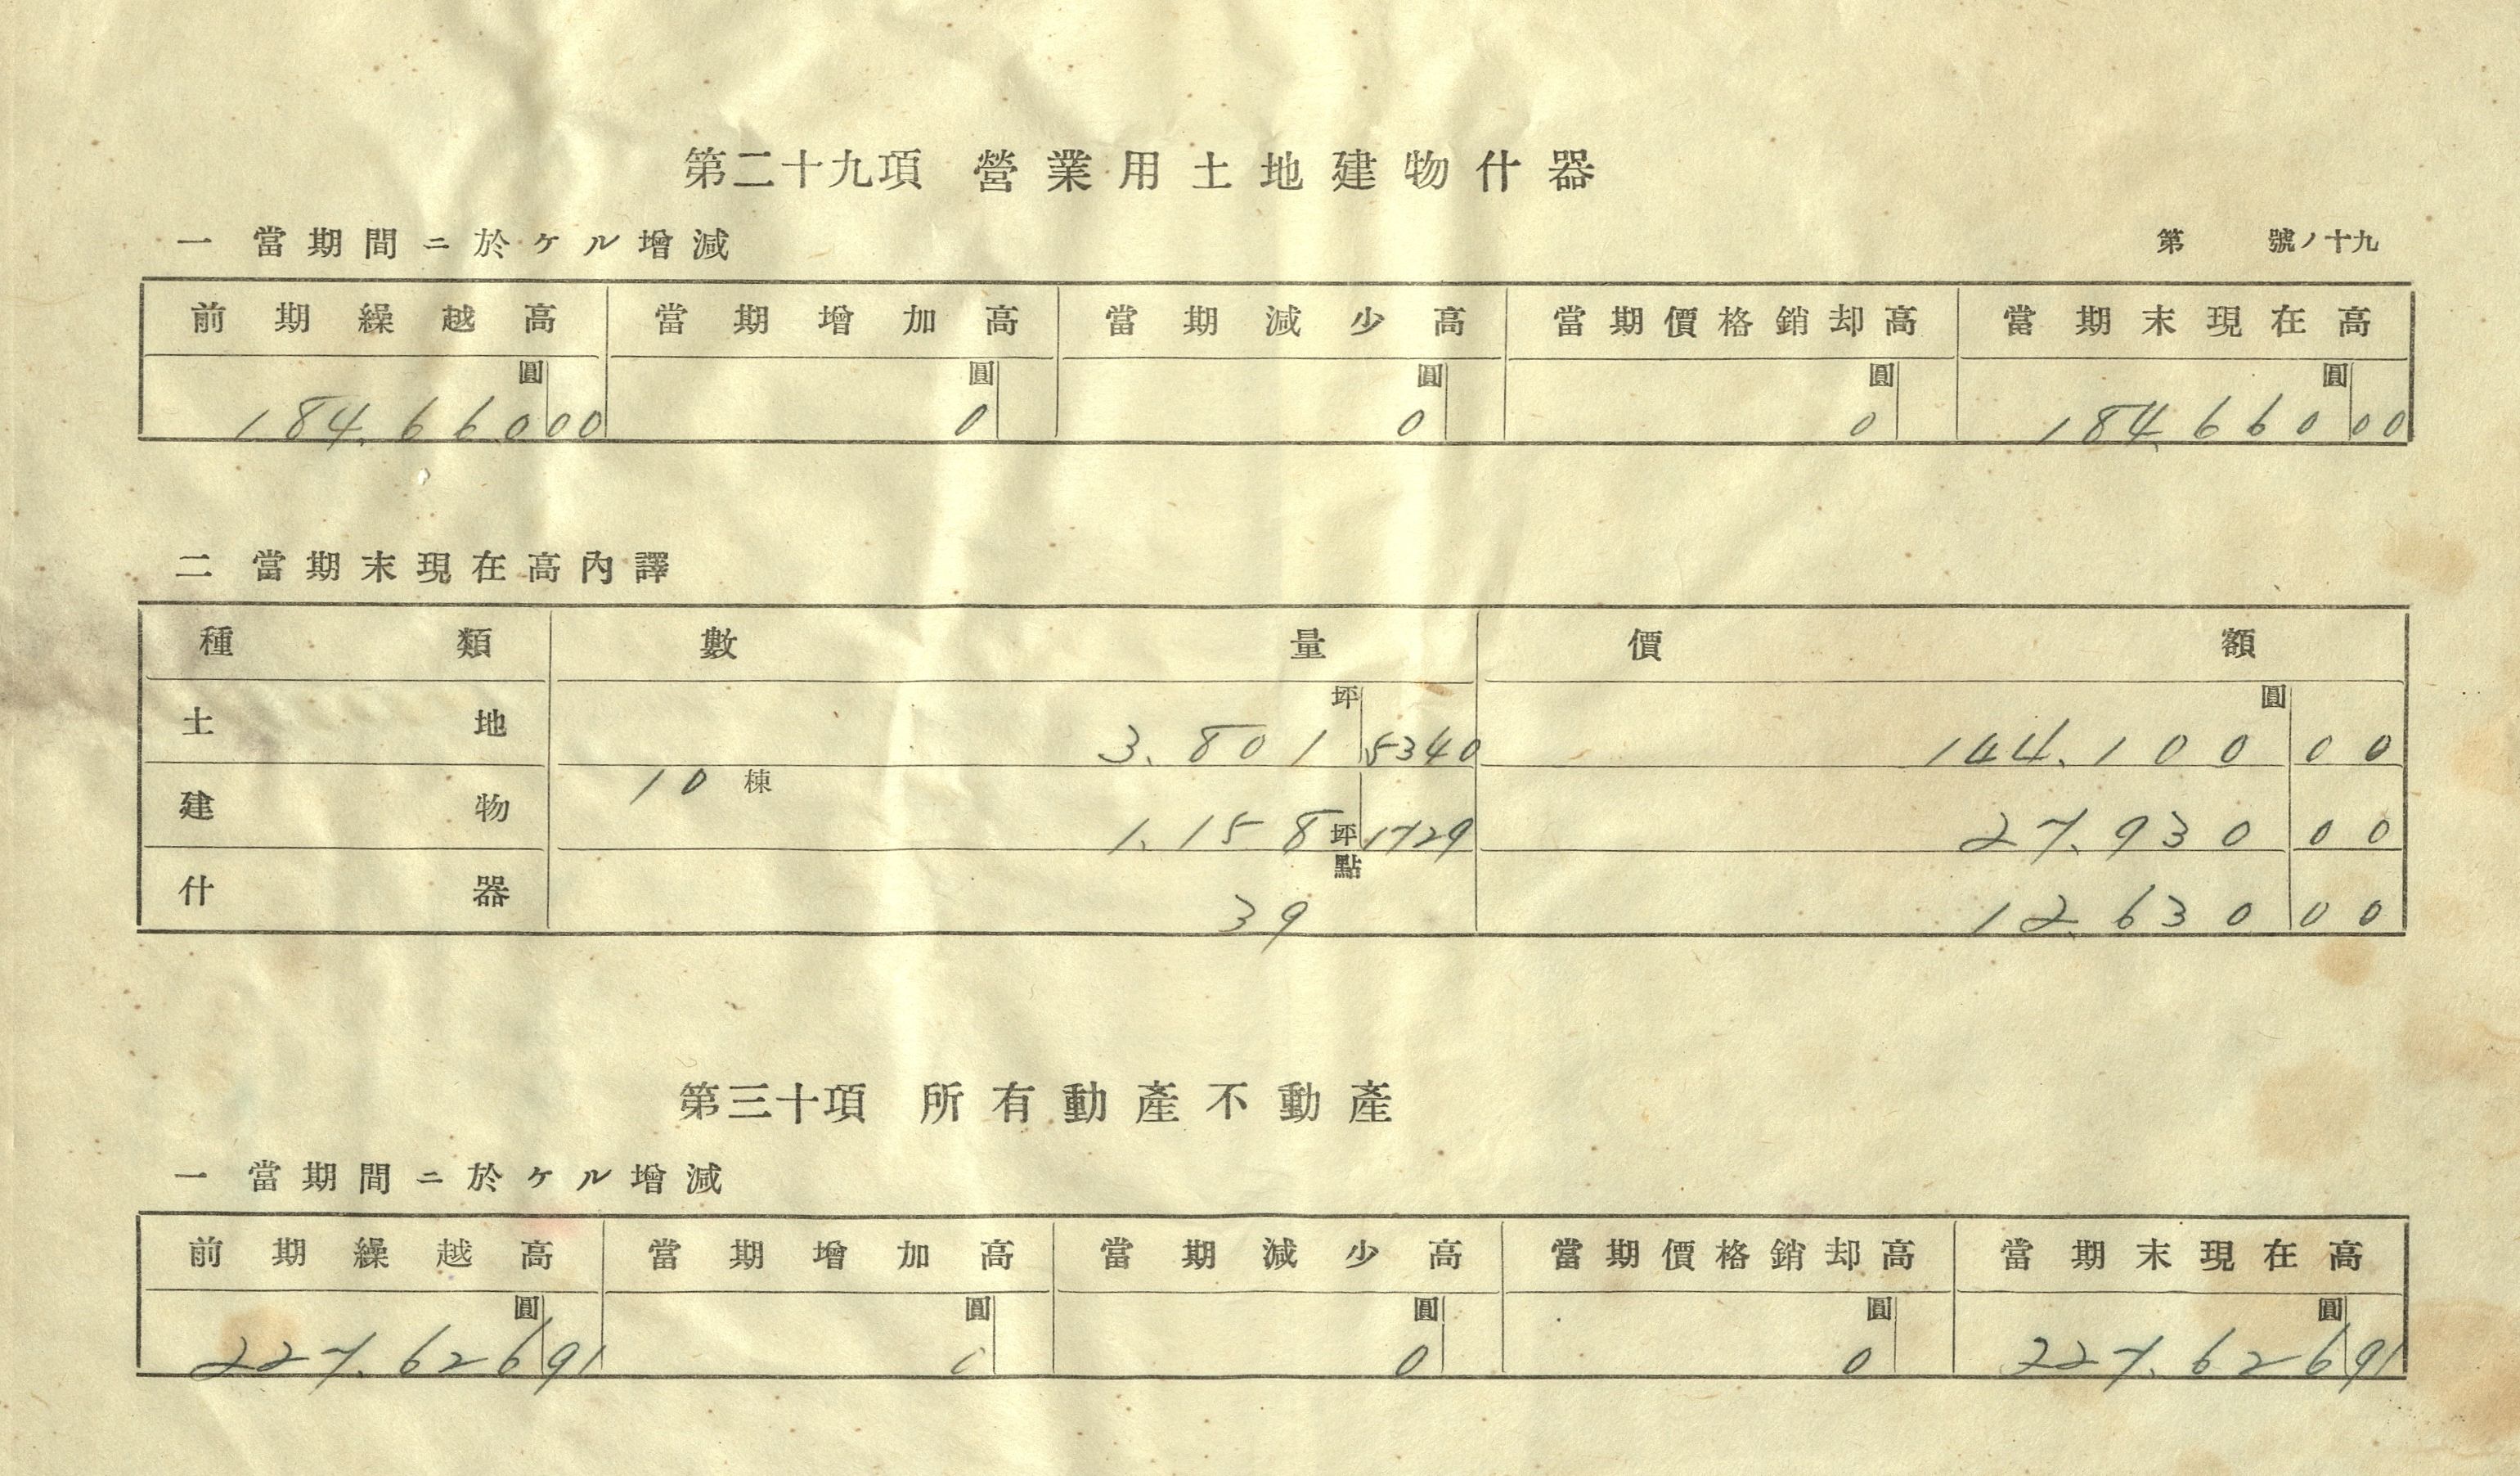 第二十九項 營業用土地建物什器
一 當期間ニ於ケル增減
第 號ノ十九
前期繰越高 當期增加高 當期減少高 當期價格銷却高 當期末現在高
圓 圓 圓 圓 圓
184.660 00 0 0 0 184.660 00
二 當期末現在高內譯
種類 數量 價額
坪 圓
土地 3.801 5340 144.100 00
10棟
建物 1.158坪1729 27.930 00
點
什器 39 12.630 00
第三十項 所有動產不動產
一 當期間ニ於ケル增減
前期繰越高 當期增加高 當期減少高 當期價格銷却高 當期末現在高
圓 圓 圓 圓 圓
227.626 91 0 0 0 227.626 91